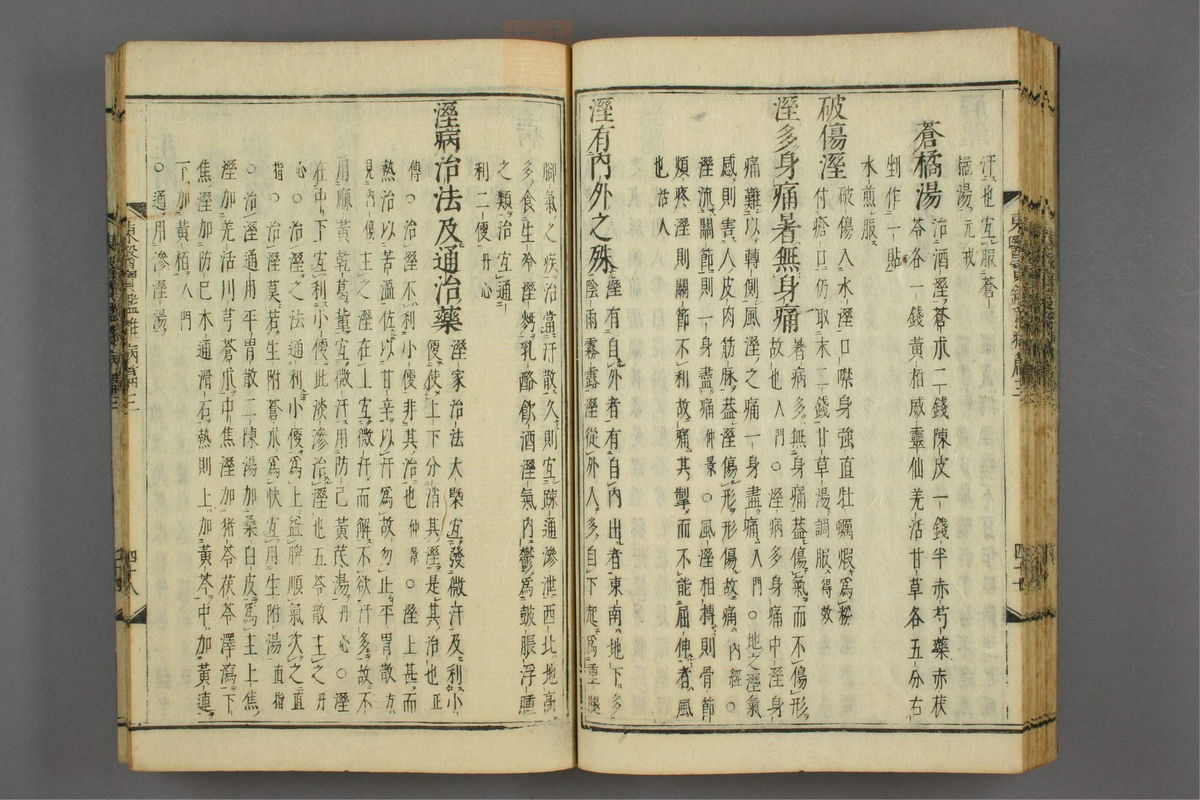 汗也宜服蒼
橘湯元戎
蒼橘湯 治酒溼蒼朮二錢陳皮一錢半赤芍藥赤茯
苓各一錢黃栢威靈仙羌活甘草各五分右
剉作一貼
水煎服
破傷溼 破傷入水溼口噤身強直牡蠣煆爲粉
付瘡口仍取末二錢甘草湯調服得效
溼多身痛暑無身痛 暑病多無身痛蓋傷氣而不傷形
故也入門○溼病多身痛中溼身
痛難以轉側風溼之痛一身盡痛入門○地之溼氣
感則害人皮肉筋脉蓋溼傷形形傷故痛內經○
溼流關節則一身盡痛仲景○風溼相搏則骨節
煩疼溼則關節不利故痛其掣而不能屈伸者風
也活人
溼有內外之殊 溼有自外者有自內出者東南地下多
陰雨霧露溼從外入多自下起爲重腿
腳氣之疾治當汗散久則宜疎通滲泄西北地高
多食生冷溼麪乳酪飮酒溼氣內鬱爲鼓脹浮腫
之類治宜通
利二便丹心
溼病治法及通治藥 溼家治法大槩宜發微汗及利小
便使上下分消其溼是其治也正
傳○治溼不利小便非其治也仲景○溼上甚而
熱治以苦溫佐以甘辛以汗爲故勿止平胃散方
見內傷主之溼在上宜微汗而解不欲汗多故不
用麻黃乾葛輩宜微汗用防己黃芪湯丹心○溼
在中下宜利小便此淡滲治溼也五苓散主之丹
心○治溼之法通利小便爲上益脾順氣次之直
指○治溼莫若生附蒼朮爲快宜用生附湯直指
○治溼通用平胃散二陳湯加桑白皮爲主上焦
溼加羌活川芎蒼朮中焦溼加猪苓茯苓澤瀉下
焦溼加防巳木通滑石熱則上加黃芩中加黃連
下加黃栢入門
○通用滲溼湯